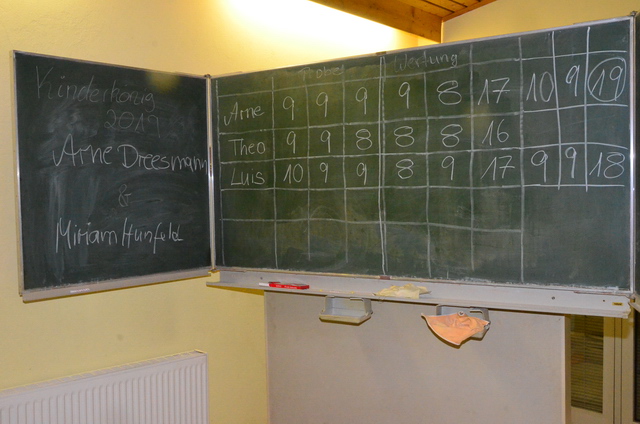 Kinderkönig
2019
Arne Dreesmann
&
Miriam Hunfeld
Probe Wertung
Arne 9 9 9 9 8 17 10 9 19
Theo 9 9 8 8 8 16
Luis 10 9 9 8 9 17 9 9 18